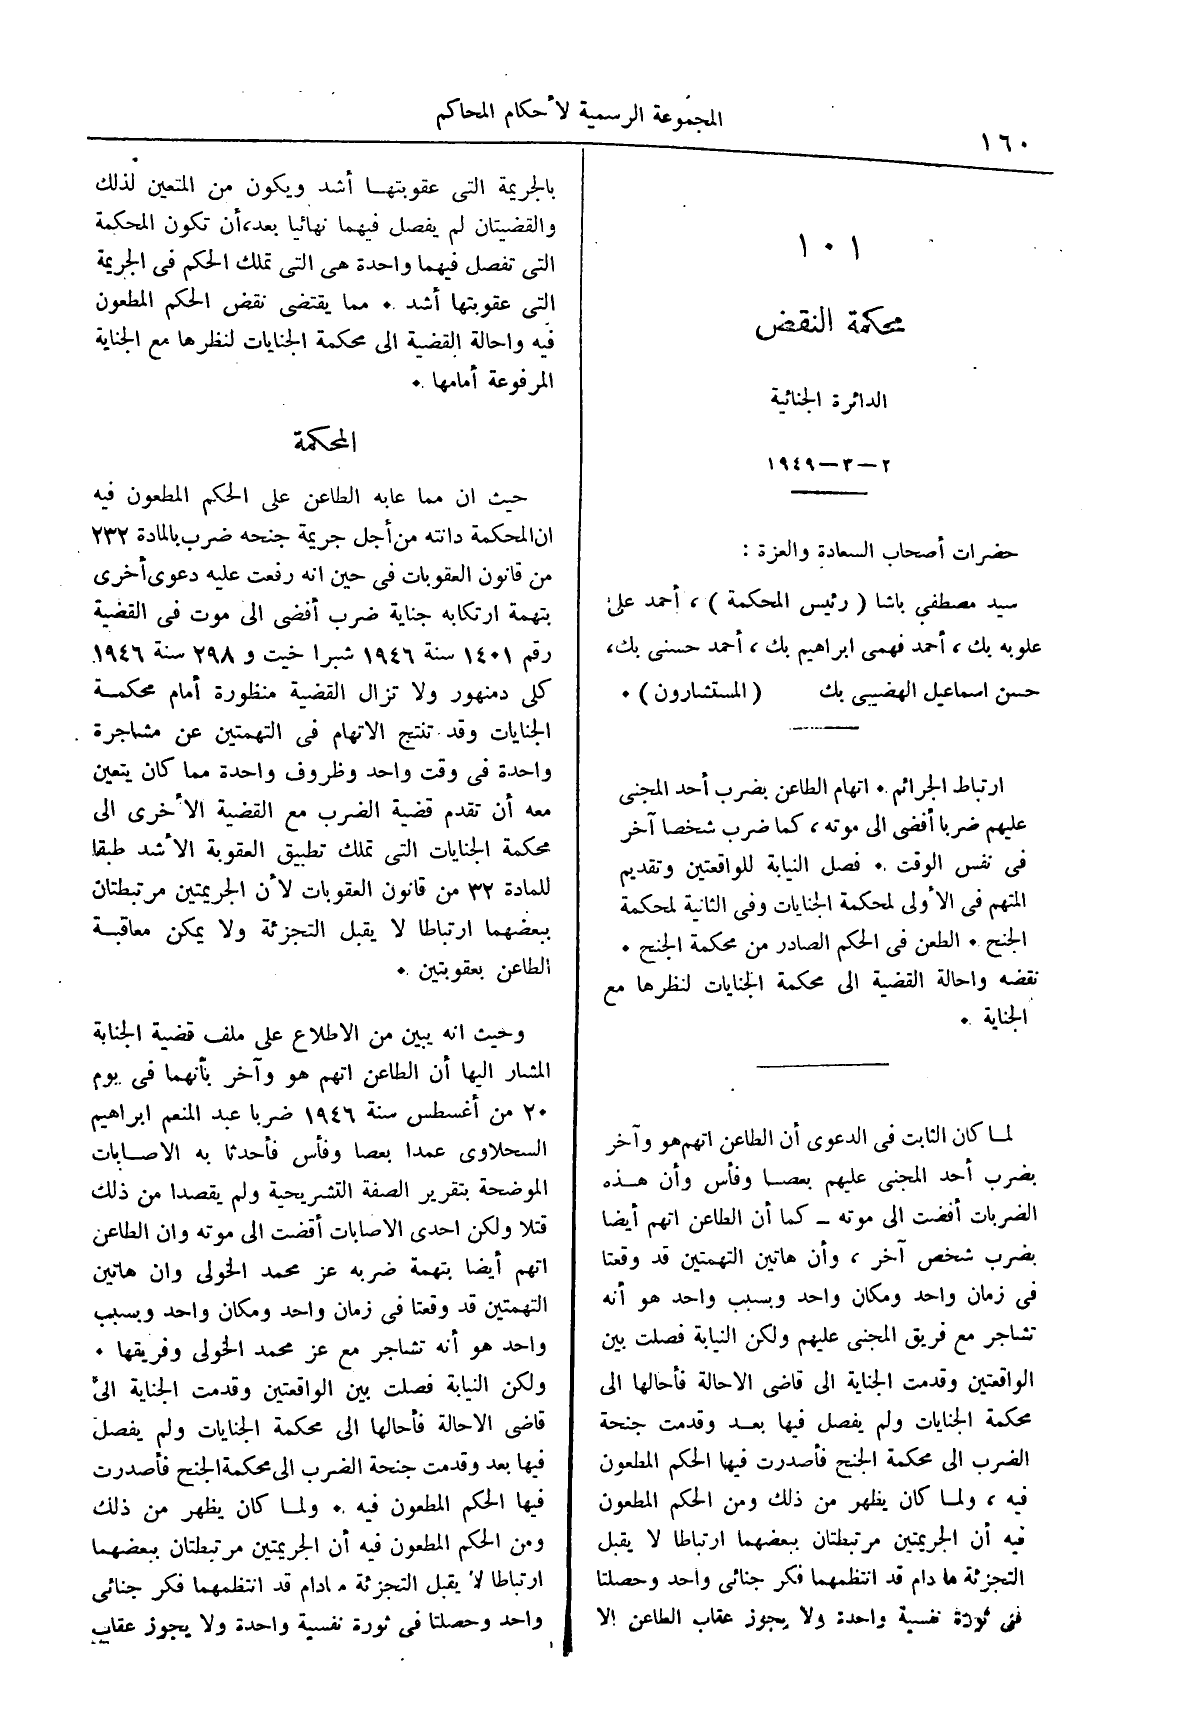 المجموعة الرسمية لأحكام المحاكم
١٦٠
١٠١
محكمة النقض
الدائرة الجنائية
٢–٣–١٩٤٩
حضرات أصحاب السعادة والعزة :
سيد مصطفى باشا ( رئيس المحكمة ) ، أحمد على
علوبه بك ، أحمد فهمى ابراهيم بك ، أحمد حسنى بك ،
حسن اسماعيل الهضيبى بك ( المستشارون ) .
ارتباط الجرائم . اتهام الطاعن بضرب أحد المجنى
عليهم ضربا أفضى الى موته ، كما ضرب شخصا آخر
فى نفس الوقت . فصل النيابة للواقعتين وتقديم
المتهم فى الأولى لمحكمة الجنايات وفى الثانية لمحكمة
الجنح . الطعن فى الحكم الصادر من محكمة الجنح .
نقضه واحالة القضية الى محكمة الجنايات لنظرها مع
الجناية .
لما كان الثابت فى الدعوى أن الطاعن اتهم هو وآخر
بضرب أحد المجنى عليهم بعصا وفأس وأن هذه
الضربات أفضت الى موته ـ كما أن الطاعن اتهم أيضا
بضرب شخص آخر ، وأن هاتين التهمتين قد وقعتا
فى زمان واحد ومكان واحد وبسبب واحد هو أنه
تشاجر مع فريق المجنى عليهم ولكن النيابة فصلت بين
الواقعتين وقدمت الجناية الى قاضى الاحالة فأحالها الى
محكمة الجنايات ولم يفصل فيها بعد وقدمت جنحة
الضرب الى محكمة الجنح فأصدرت فيها الحكم المطعون
فيه ، ولما كان يظهر من ذلك ومن الحكم المطعون
فيه أن الجريمتين مرتبطتان ببعضهما ارتباطا لا يقبل
التجزئة ما دام قد انتظمهما فكر جنائى واحد وحصلتا
فى ثورة نفسية واحدة ولا يجوز عقاب الطاعن الا
بالجريمة التى عقوبتها أشد ويكون من المتعين لذلك
والقضيتان لم يفصل فيهما نهائيا بعد، أن تكون المحكمة
التى تفصل فيهما واحدة هى التى تملك الحكم فى الجريمة
التى عقوبتها أشد . مما يقتضى نقض الحكم المطعون
فيه واحالة القضية الى محكمة الجنايات لنظرها مع الجناية
المرفوعة أمامها .
المحكمة
حيث ان مما عابه الطاعن على الحكم المطعون فيه
ان المحكمة دانته من أجل جريمة جنحه ضرب بالمادة ٢٣٢
من قانون العقوبات فى حين انه رفعت عليه دعوى أخرى
بتهمة ارتكابه جناية ضرب أفضى الى موت فى القضية
رقم ١٤٠١ سنة ١٩٤٦ شبرا خيت و ٢٩٨ سنة ١٩٤٦
كلى دمنهور ولا تزال القضية منظورة أمام محكمة
الجنايات وقد تنتج الاتهام فى التهمتين عن مشاجرة
واحدة فى وقت واحد وظروف واحدة مما كان يتعين
معه أن تقدم قضية الضرب مع القضية الأخرى الى
محكمة الجنايات التى تملك تطبيق العقوبة الأشد طبقا
للمادة ٣٢ من قانون العقوبات لأن الجريمتين مرتبطتان
ببعضهما ارتباطا لا يقبل التجزئة ولا يمكن معاقبة
الطاعن بعقوبتين .
وحيث انه يبين من الاطلاع على ملف قضية الجناية
المشار اليها أن الطاعن اتهم هو وآخر بأنهما فى يوم
٢٠ من أغسطس سنة ١٩٤٦ ضربا عبد المنعم ابراهيم
السحلاوى عمدا بعصا وفأس فأحدثا به الاصابات
الموضحة بتقرير الصفة التشريحية ولم يقصدا من ذلك
قتلا ولكن احدى الاصابات أقضت الى موته وان الطاعن
اتهم أيضا بتهمة ضربه عز محمد الخولى وان هاتين
التهمتين قد وقعتا فى زمان واحد ومكان واحد وبسبب
واحد هو أنه تشاجر مع عز محمد الخولى وفريقها .
ولكن النيابة فصلت بين الواقعتين وقدمت الجناية الى
قاضى الاحالة فأحالها الى محكمة الجنايات ولم يفصل
فيها بعد وقدمت جنحة الضرب الى محكمة الجنح فأصدرت
فيها الحكم المطعون فيه . ولما كان يظهر من ذلك
ومن الحكم المطعون فيه أن الجريمتين مرتبطتان ببعضهما
ارتباطا لا يقبل التجزئة مادام قد انتظمهما فكر جنائى
واحد وحصلتا فى ثورة نفسية واحدة ولا يجوز عقاب